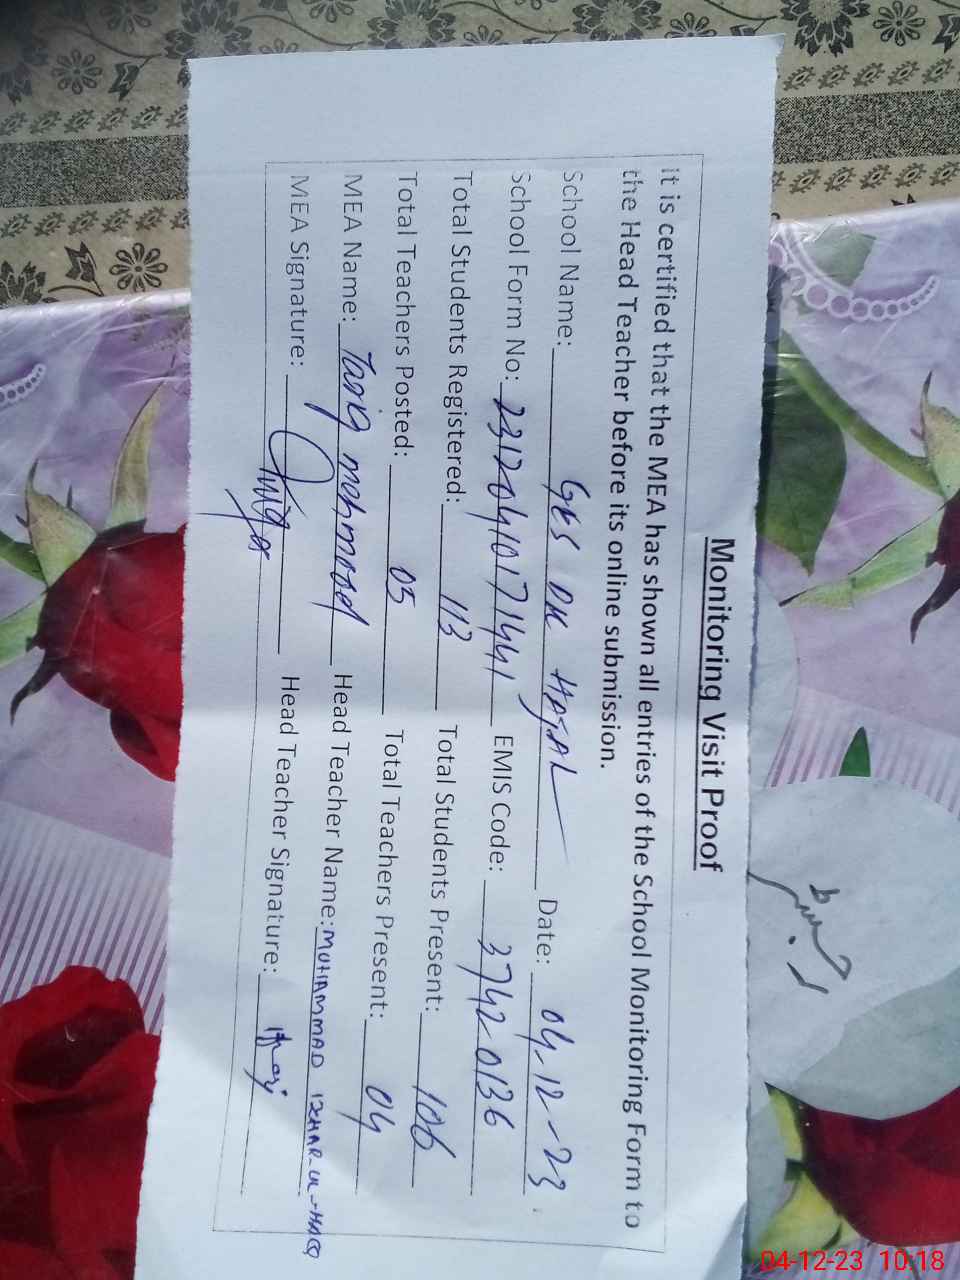 Monitoring Visit Proof
It is certified that the MEA has shown all entries of the School Monitoring Form to
the Head Teacher before its online submission.
School Name: GES DK HAJAL Date: 04-12-23
School Form No: 23120410171441 EMIS Code: 37420136
Total Students Registered: 113 Total Students Present: 106
Total Teachers Posted: 05 Total Teachers Present: 04
MEA Name: Tariq mehmood Head Teacher Name: MUHAMMAD IZHAR-UL-HAQ
MEA Signature: Head Teacher Signature:
04-12-23 10:18